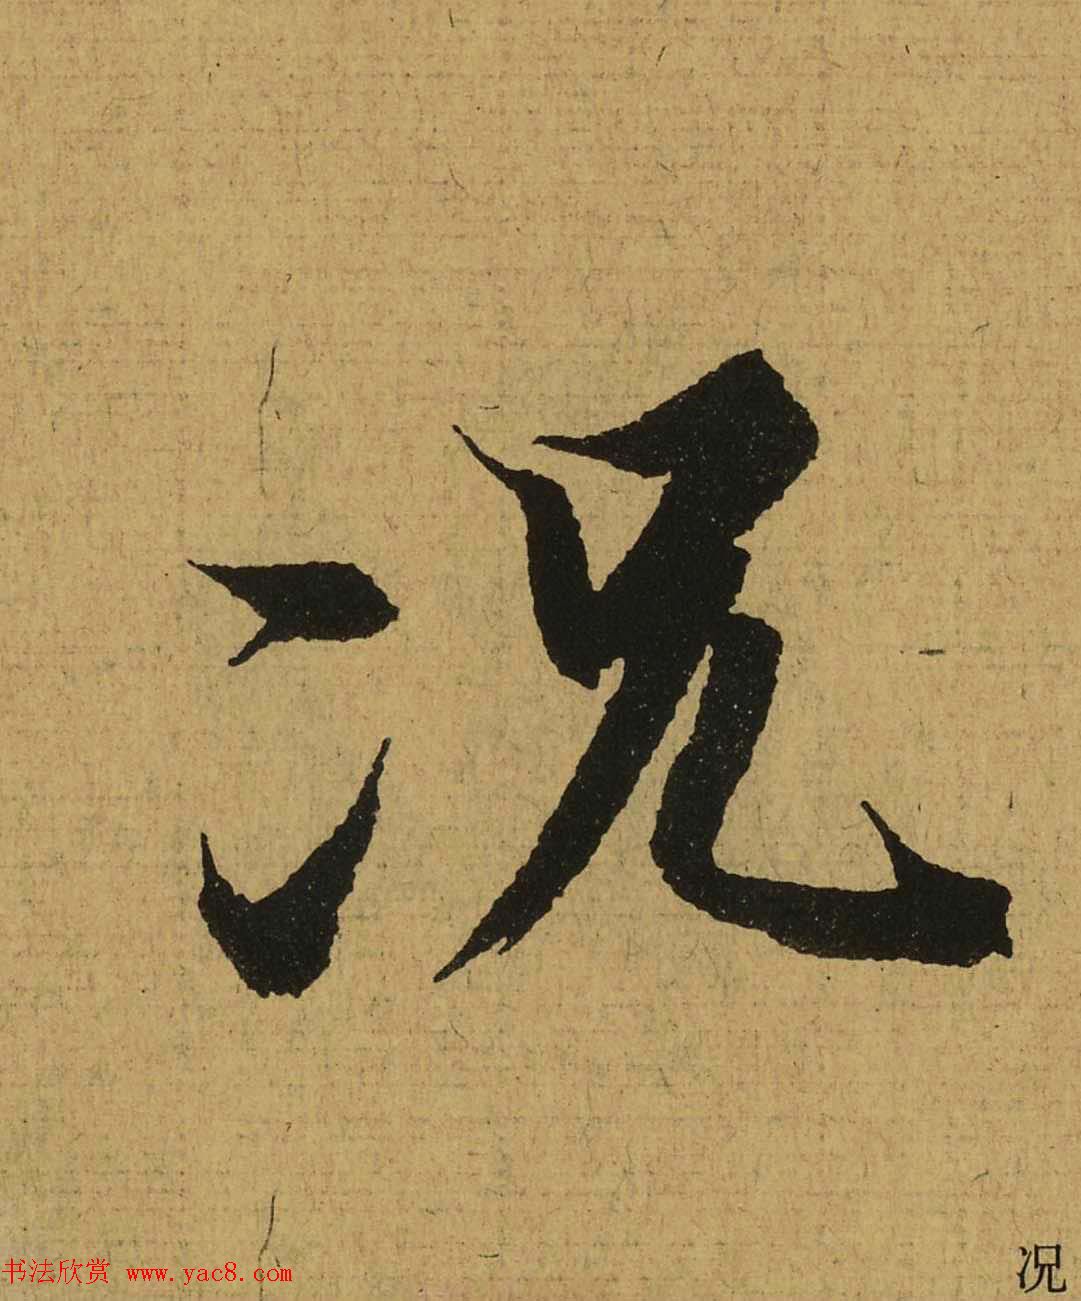 况
书法欣赏 www.yac8.com
况